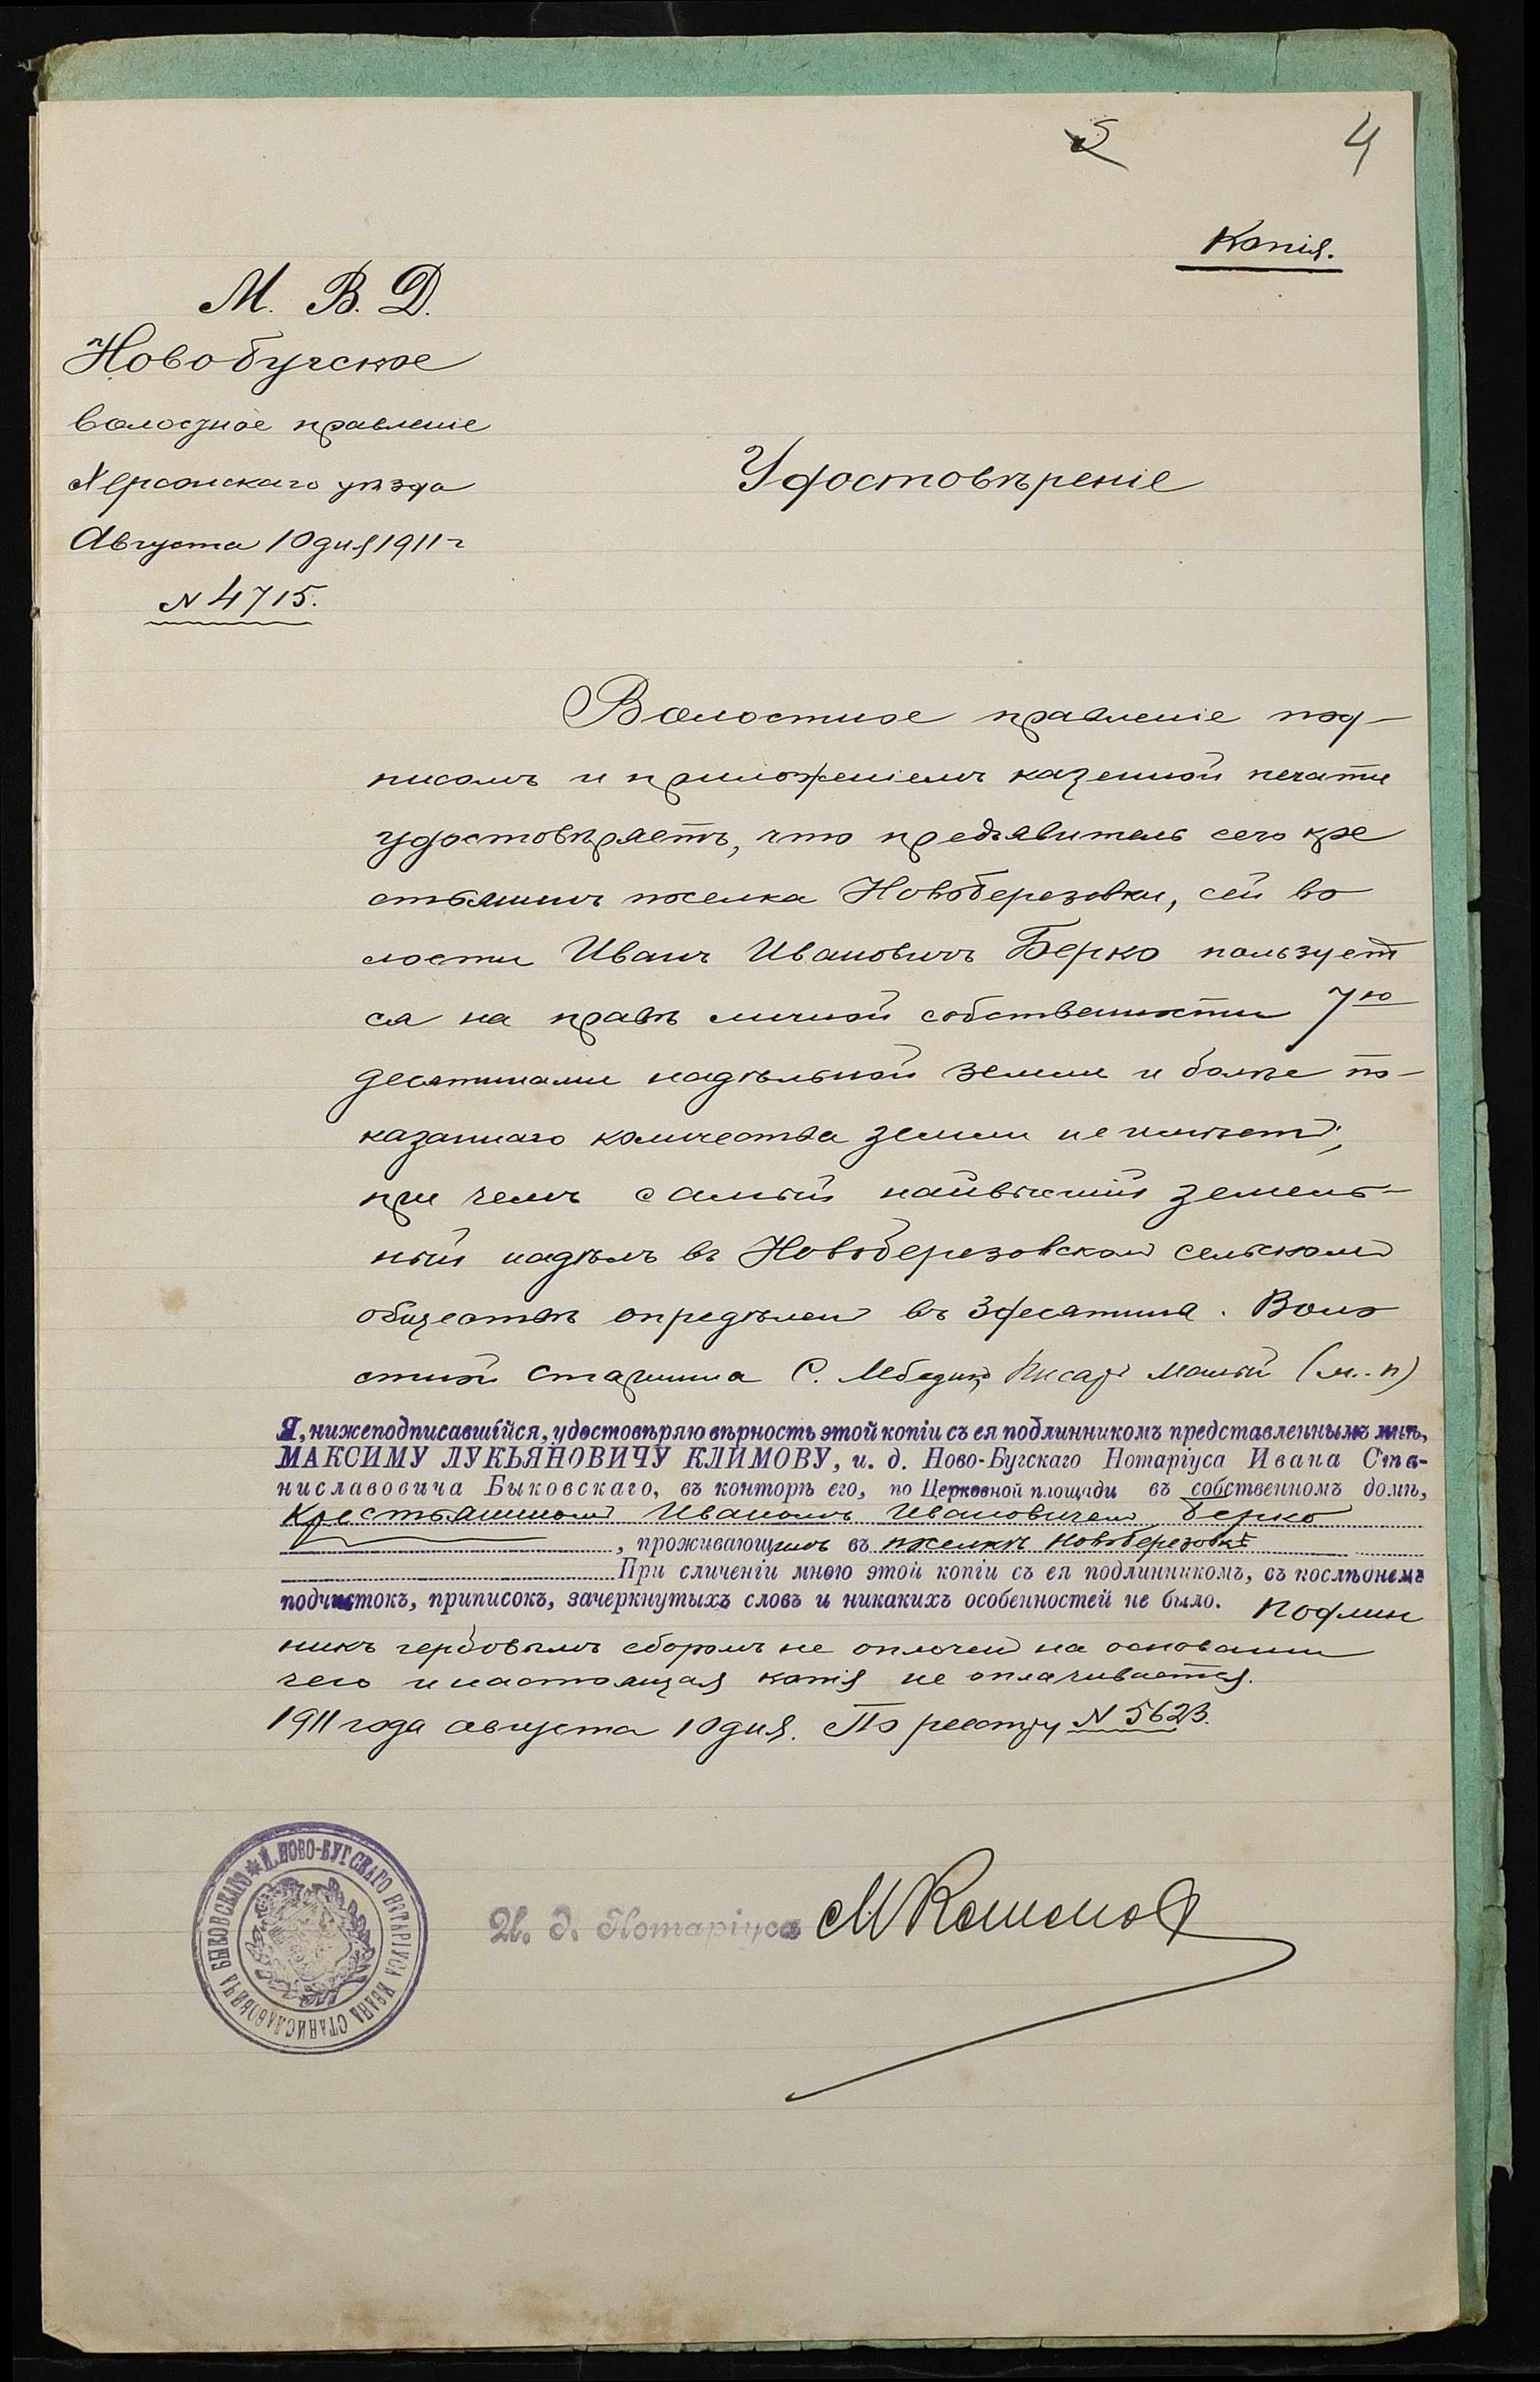 5 4
Копія.
М. В. Д.
Новобугское
волостное правленіе
Херсонскаго уѣзда
Августа 10 дня 1911 г
N 4715.
Удостовѣреніе
Волостное правленіе под-
писомъ и приложеніемъ казенной печати
удостовѣряетъ, что предъявитель сего кре
стьянинъ поселка Новоберезовки, сей во
лости Иванъ Ивановичъ Берко пользует
ся на правѣ личной собственности 7ю
десятинами надѣльной земли и болѣе по-
казаннаго количества земли не имѣетъ,
при чемъ самый наивысшій земель-
ный надѣлъ въ Новоберезовском сельском
обществѣ опредѣлен въ 3 десятина. Воло
стной старшина С. Писарь Малый (м. п)
Я, нижеподписавшійся, удостовѣряю вѣрность этой копіи съ ея подлинникомъ представленнымъ мнѣ,
МАКСИМУ ЛУКЬЯНОВИЧУ КЛИМОВУ, и. д. Ново-Бугскаго Нотаріуса Ивана Ста-
ниславовича Быковскаго, въ конторѣ его, по Церковной площади въ собственномъ домѣ,
Крестьянином Иваномъ Ивановичем Берко
, проживающимъ въ поселкѣ Новоберезовкѣ
При сличеніи мною этой копіи съ ея подлинникомъ, въ послѣднемъ
подчистокъ, приписокъ, зачеркнутыхъ словъ и никакихъ особенностей не было. Подлин
никъ гербовымъ сборомъ не оплочен на основании
чего и настоящая копія не оплачивается.
1911 года августа 10 дня. По реестру N 5623.
И. д. Нотаріуса МКлимов
Н. НОВО-БУГСКАГО НОТАРІУСА ИВАНА СТАНИСЛАВОВИЧА БЫКОВСКАГО